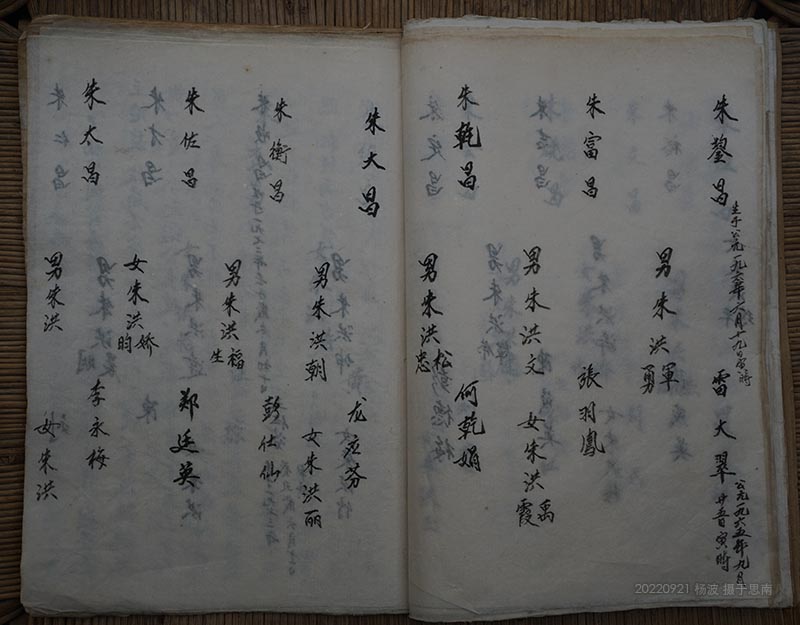 朱蓥昌 生于公元一九六一年六月十九日寅時 雷大翠 公元一九六五年九月廿音寅時
男朱洪軍 勇
朱富昌 張羽鳳
男朱洪文 女朱洪禹 霞
朱乾昌 何乾娟
男朱洪松 忠
朱大昌 龙应芬
男朱洪朝 女朱洪丽
朱衡昌 彭仕仙
男朱洪福 生
朱佐昌 郑廷英
女朱洪娇 昀
朱太昌 李永梅
男朱洪 女朱洪
20220921 杨波 摄于思南